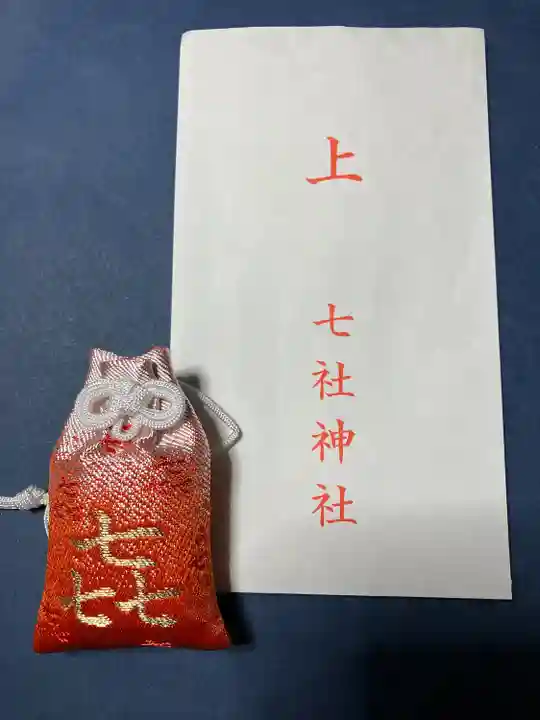 上 七社神社
七
七七